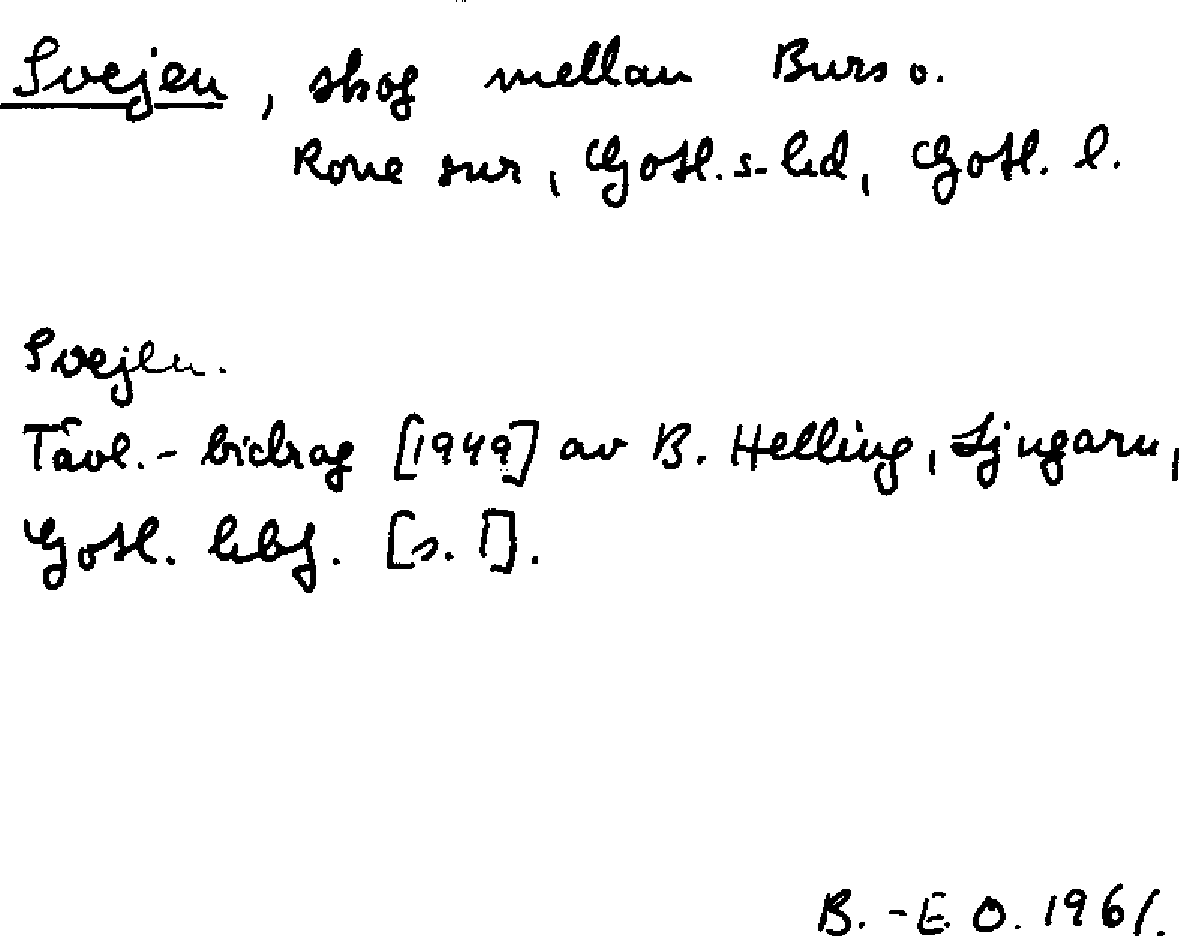 Svejen, skog mellan Burs o.
Rone snr, Gotl. s-hd, Gotl. l.
Svejen.
Tävl.-bidrag [1949] av B. Helling, Ljugarn,
Gotl. hbf. [s. 1].
B.-E. O. 1961.